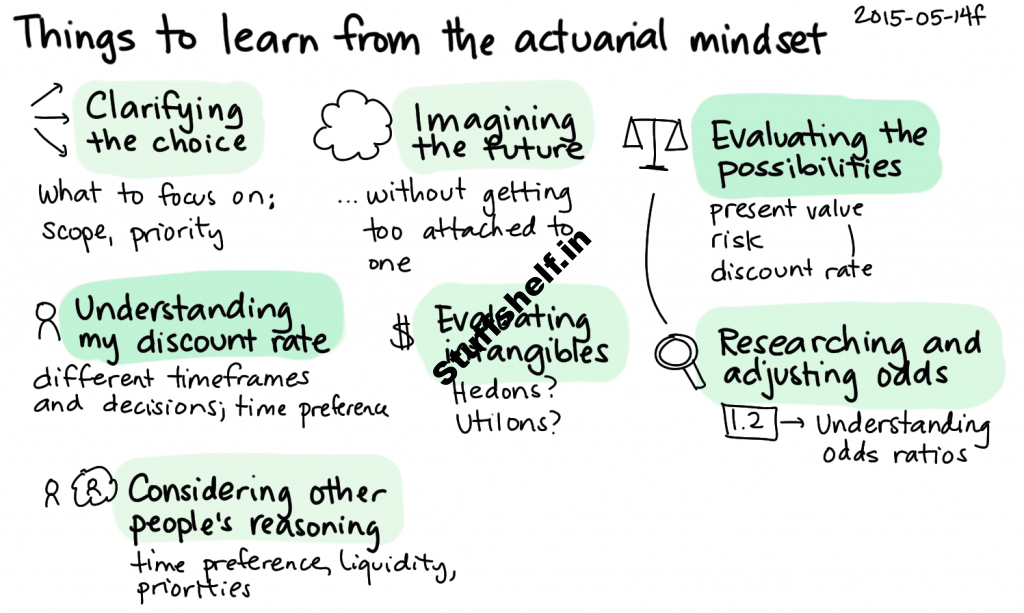 Things to learn from the actuarial mindset
2015-05-14f
Clarifying
the choice
what to focus on;
scope, priority
Imagining
the future
...without getting
too attached to
one
Evaluating the
possibilities
present value
risk
discount rate
Understanding
my discount rate
different timeframes
and decisions; time preference
$
Evaluating
intangibles
Hedons?
Utilons?
Stuffshelf.in
Researching and
adjusting odds
1.2 → Understanding
odds ratios
Considering other
people's reasoning
time preference, liquidity,
priorities